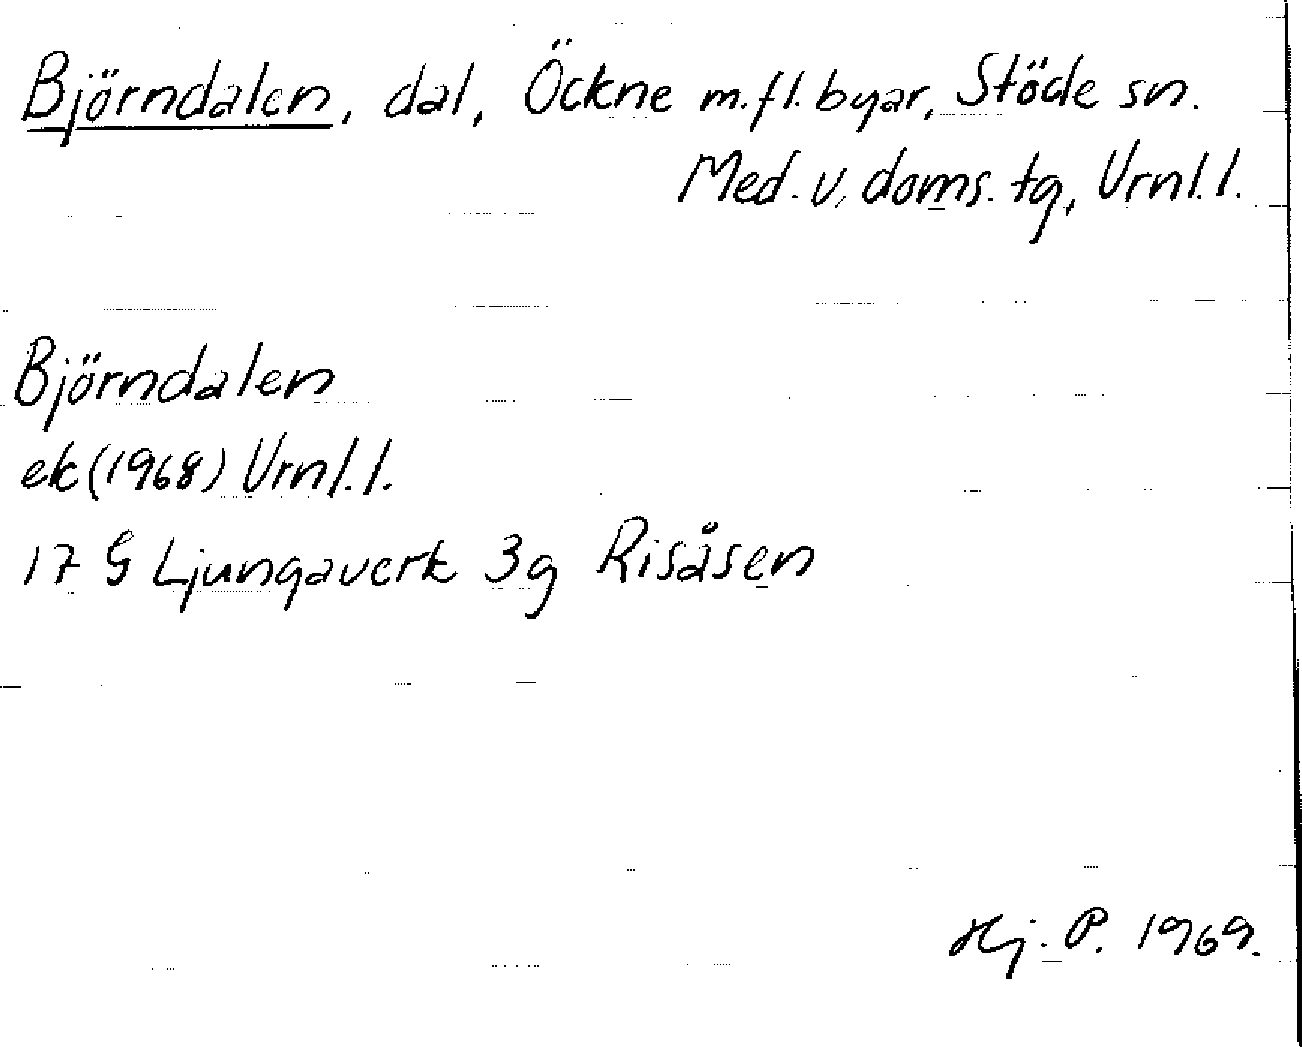 Björndalen, dal, Öckne m.fl. byar, Stöde sn.
Med. v, doms. tg, Vrnl. l.
Björndalen
ek (1968) Vrnl. l.
17 G Ljungaverk 3g Risåsen
Hj. P. 1969.